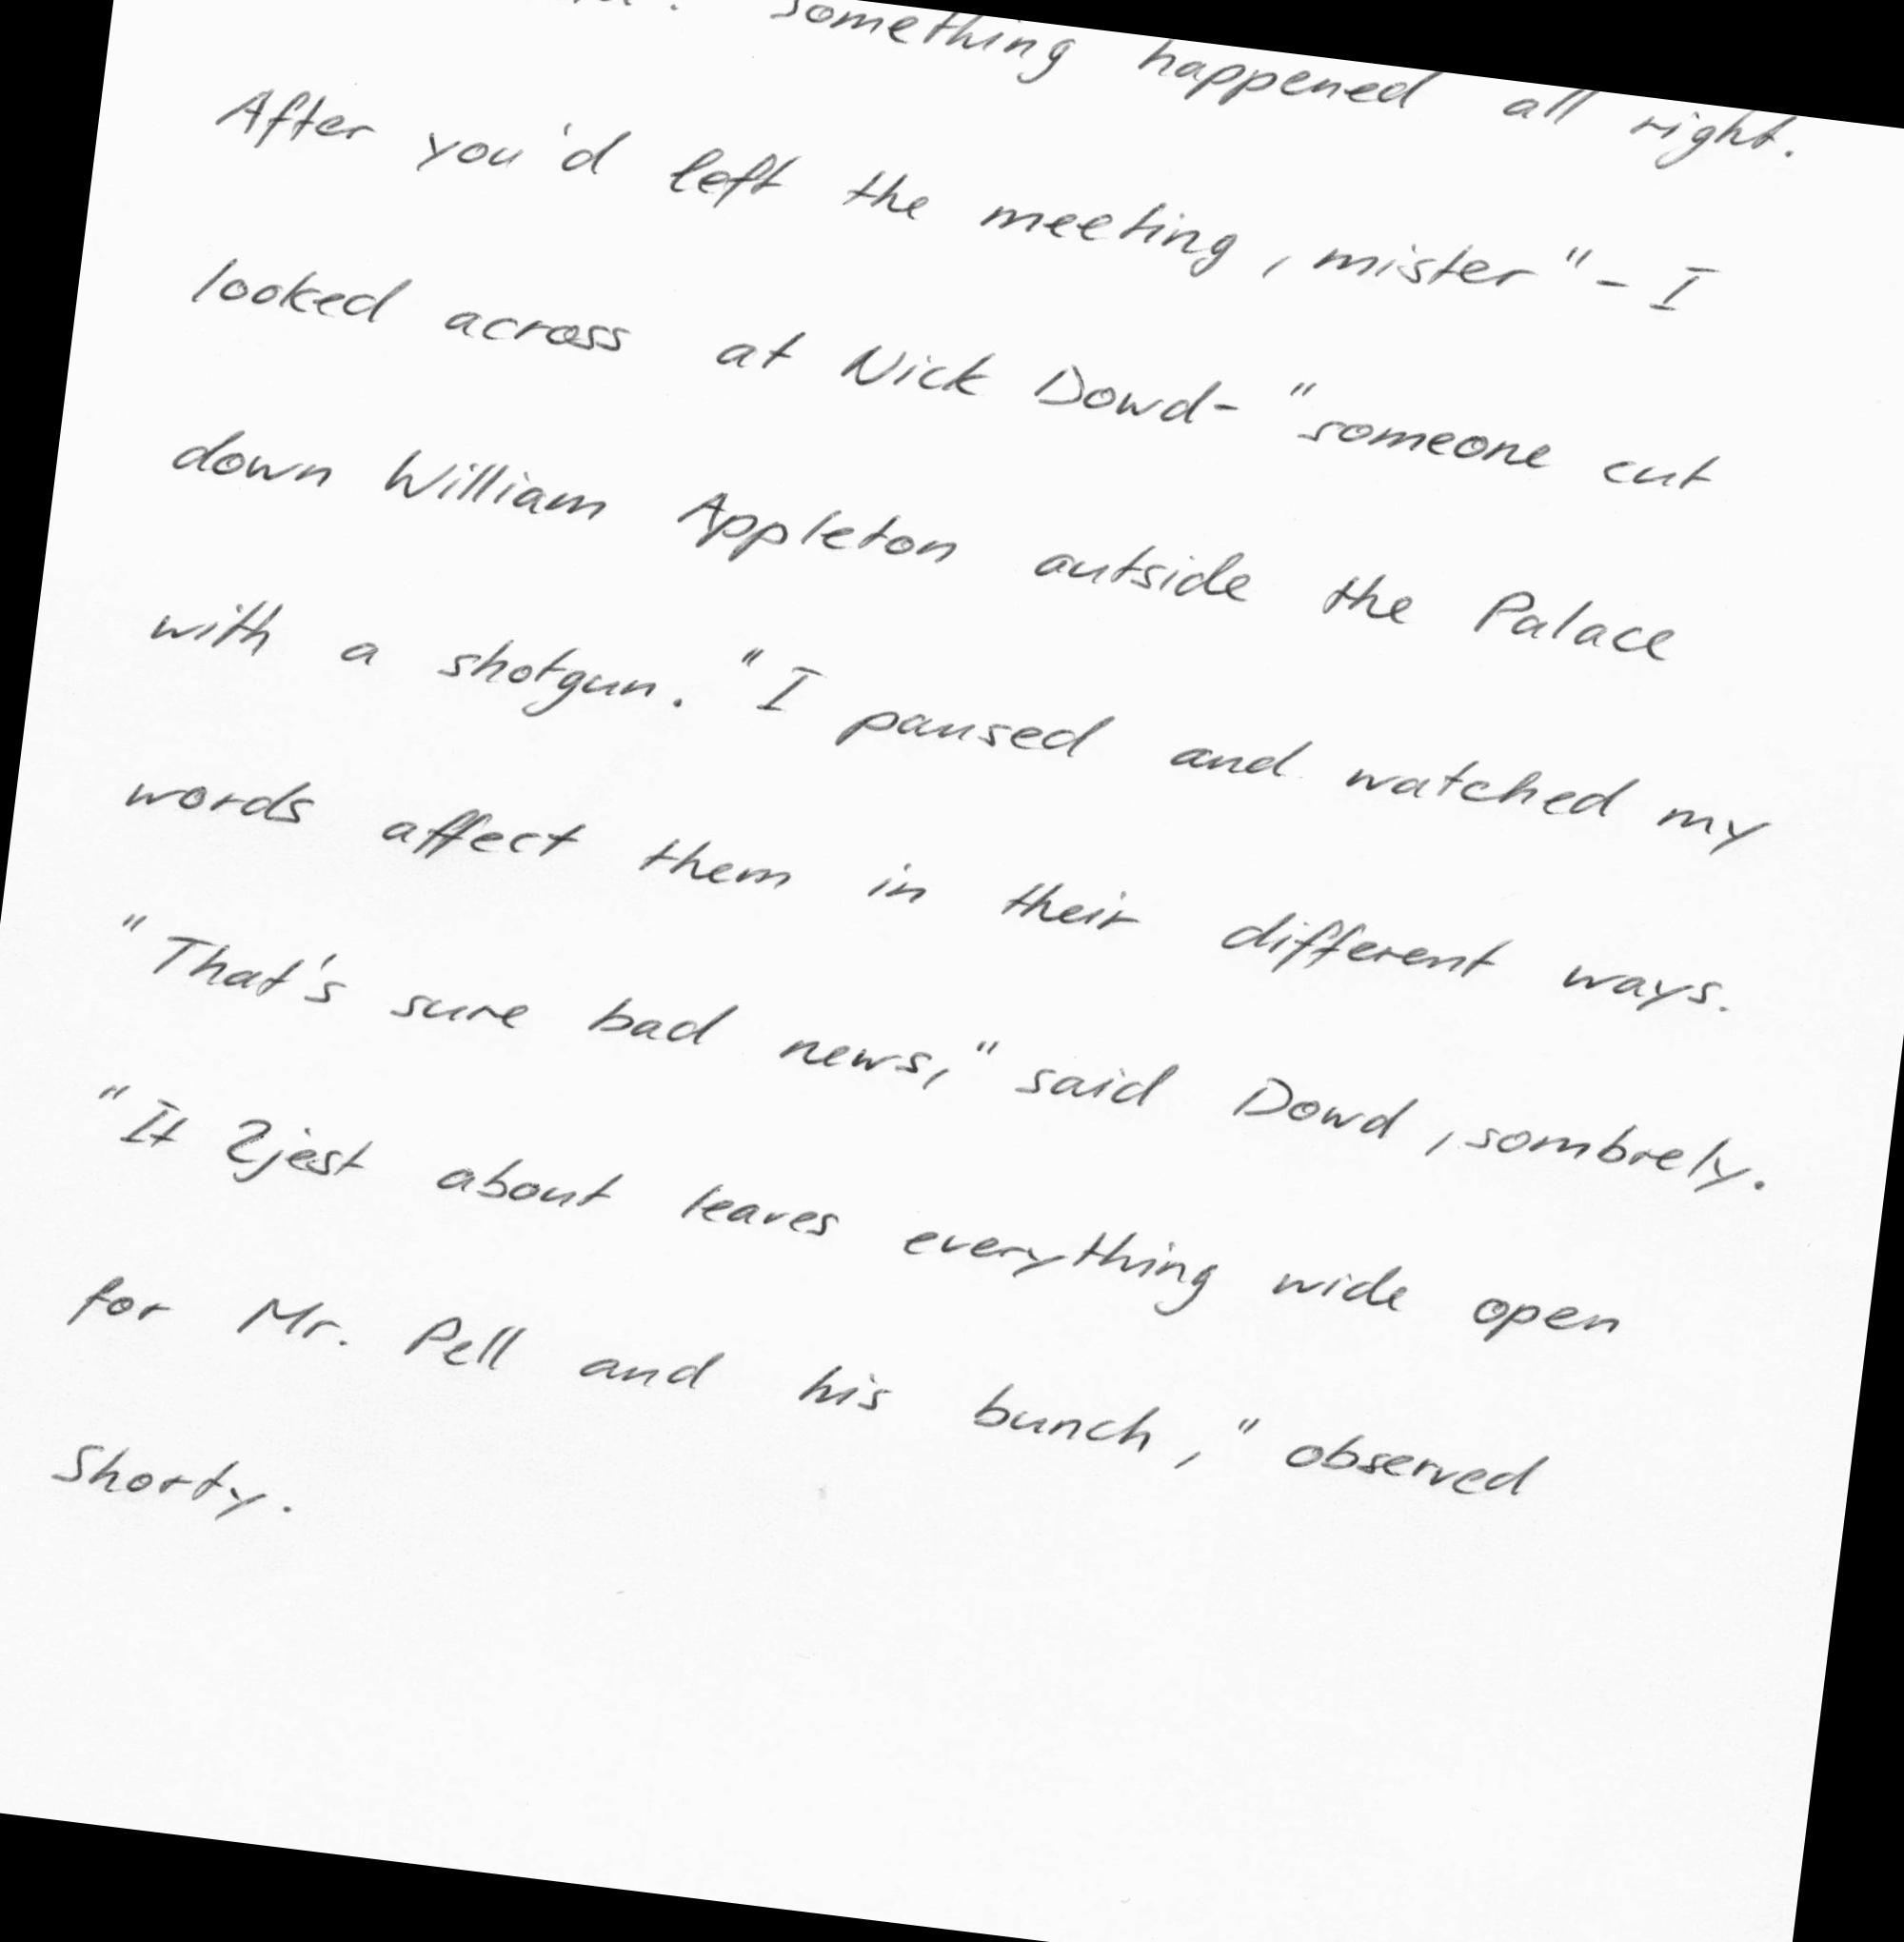 something happened all right.
After you'd left the meeting, mister" - I
looked across at Nick Dowd- "someone cut
down William Appleton outside the Palace
with a shotgun. "I paused and watched my
words affect them in their different ways.
"That's sure bad news," said Dowd, sombrely.
"It jest about leaves everything wide open
for Mr. Pell and his bunch," observed
Shorty.